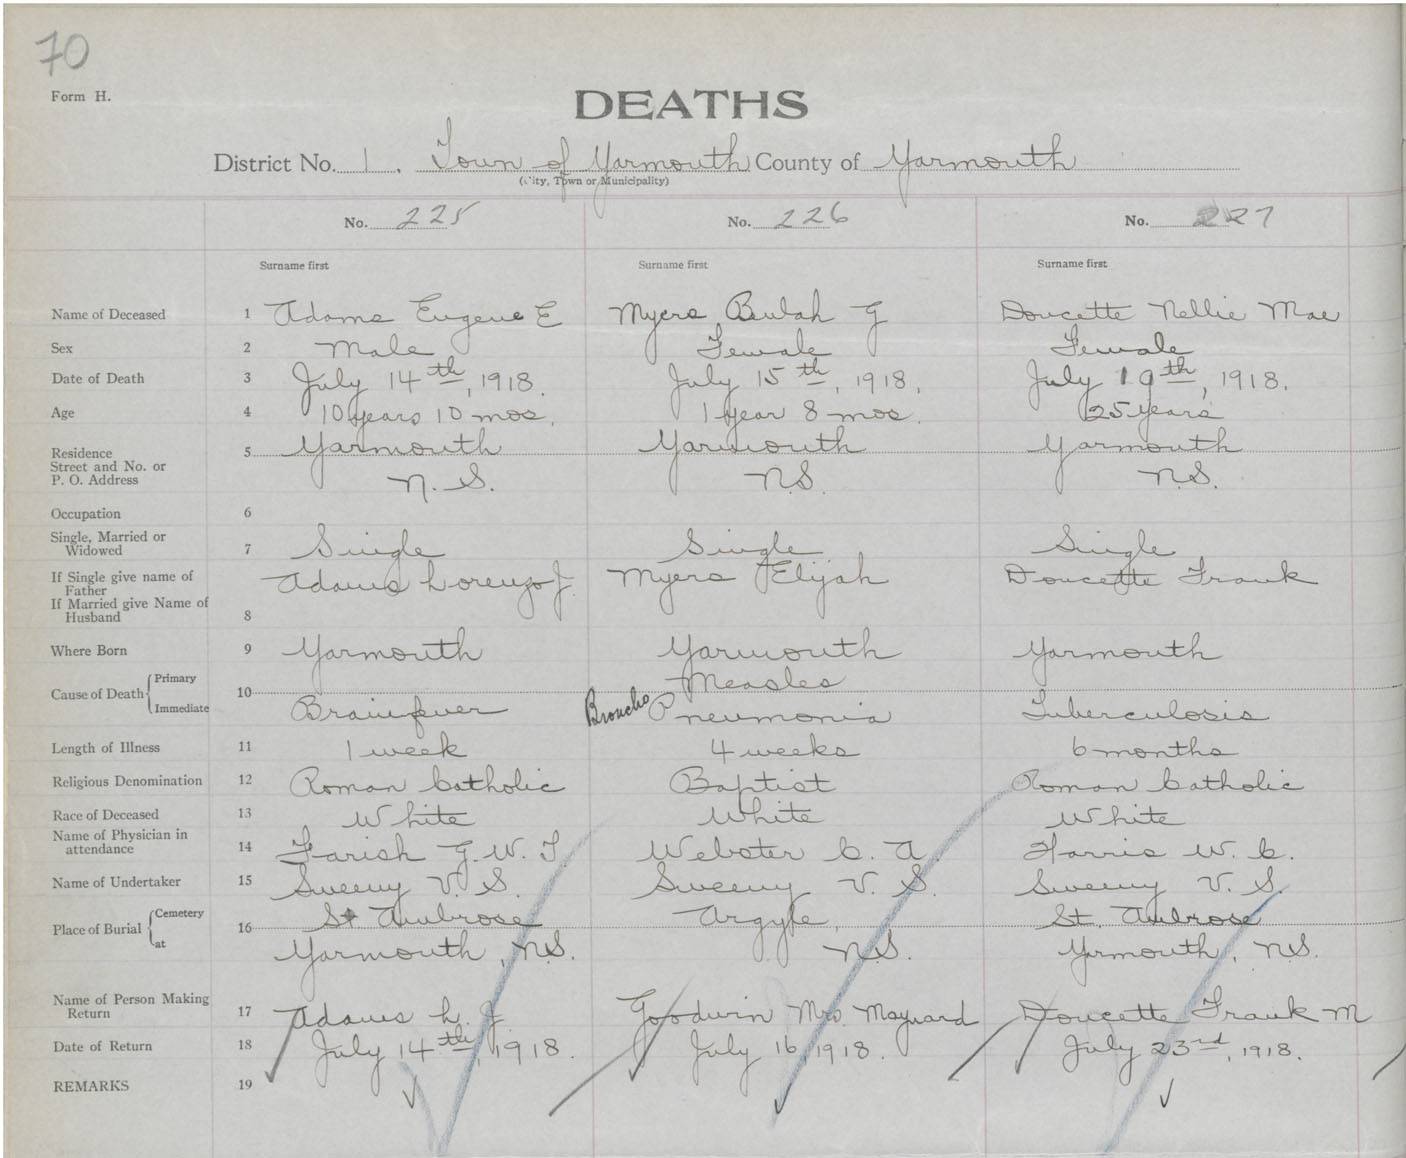 70
Form H.
DEATHS
District No. 1. Town of Yarmouth County of Yarmouth
(City, Town or Municipality)
No. 225 No. 226 No. 227
Surname first Surname first Surname first
Name of Deceased 1 Adams Eugene E Myers Beulah G Doucette Nellie Mae
Sex 2 Male Female Female
Date of Death 3 July 14th, 1918. July 15th, 1918. July 19th, 1918.
Age 4 10 years 10 mos. 1 year 8 mos. 25 years
Residence 5 Yarmouth Yarmouth Yarmouth
Street and No. or
P. O. Address N. S. N.S. N.S.
Occupation 6
Single, Married or
Widowed 7 Single Single Single
If Single give name of Adams Lorenzo J. Myers Elijah Doucette Frank
Father
If Married give Name of
Husband 8
Where Born 9 Yarmouth Yarmouth Yarmouth
Primary Measles
Cause of Death 10
Immediate Brain fever Broncho Pneumonia Tuberculosis
Length of Illness 11 1 week 4 weeks 6 months
Religious Denomination 12 Roman Catholic Baptist Roman Catholic
Race of Deceased 13 White White White
Name of Physician in
attendance 14 Farish G. W. T. Webster C. A. Harris W. C.
Name of Undertaker 15 Sweeny V. S. Sweeny V. S. Sweeny V. S.
Cemetery St Ambrose Argyle, St. Ambrose
Place of Burial 16
at Yarmouth, N.S. N.S. Yrmouth, N.S.
Name of Person Making
Return 17 Adams L. J. Goodwin Mrs Maynard Doucette Frank M
Date of Return 18 July 14th, 1918. July 16, 1918. July 23rd, 1918.
REMARKS 19